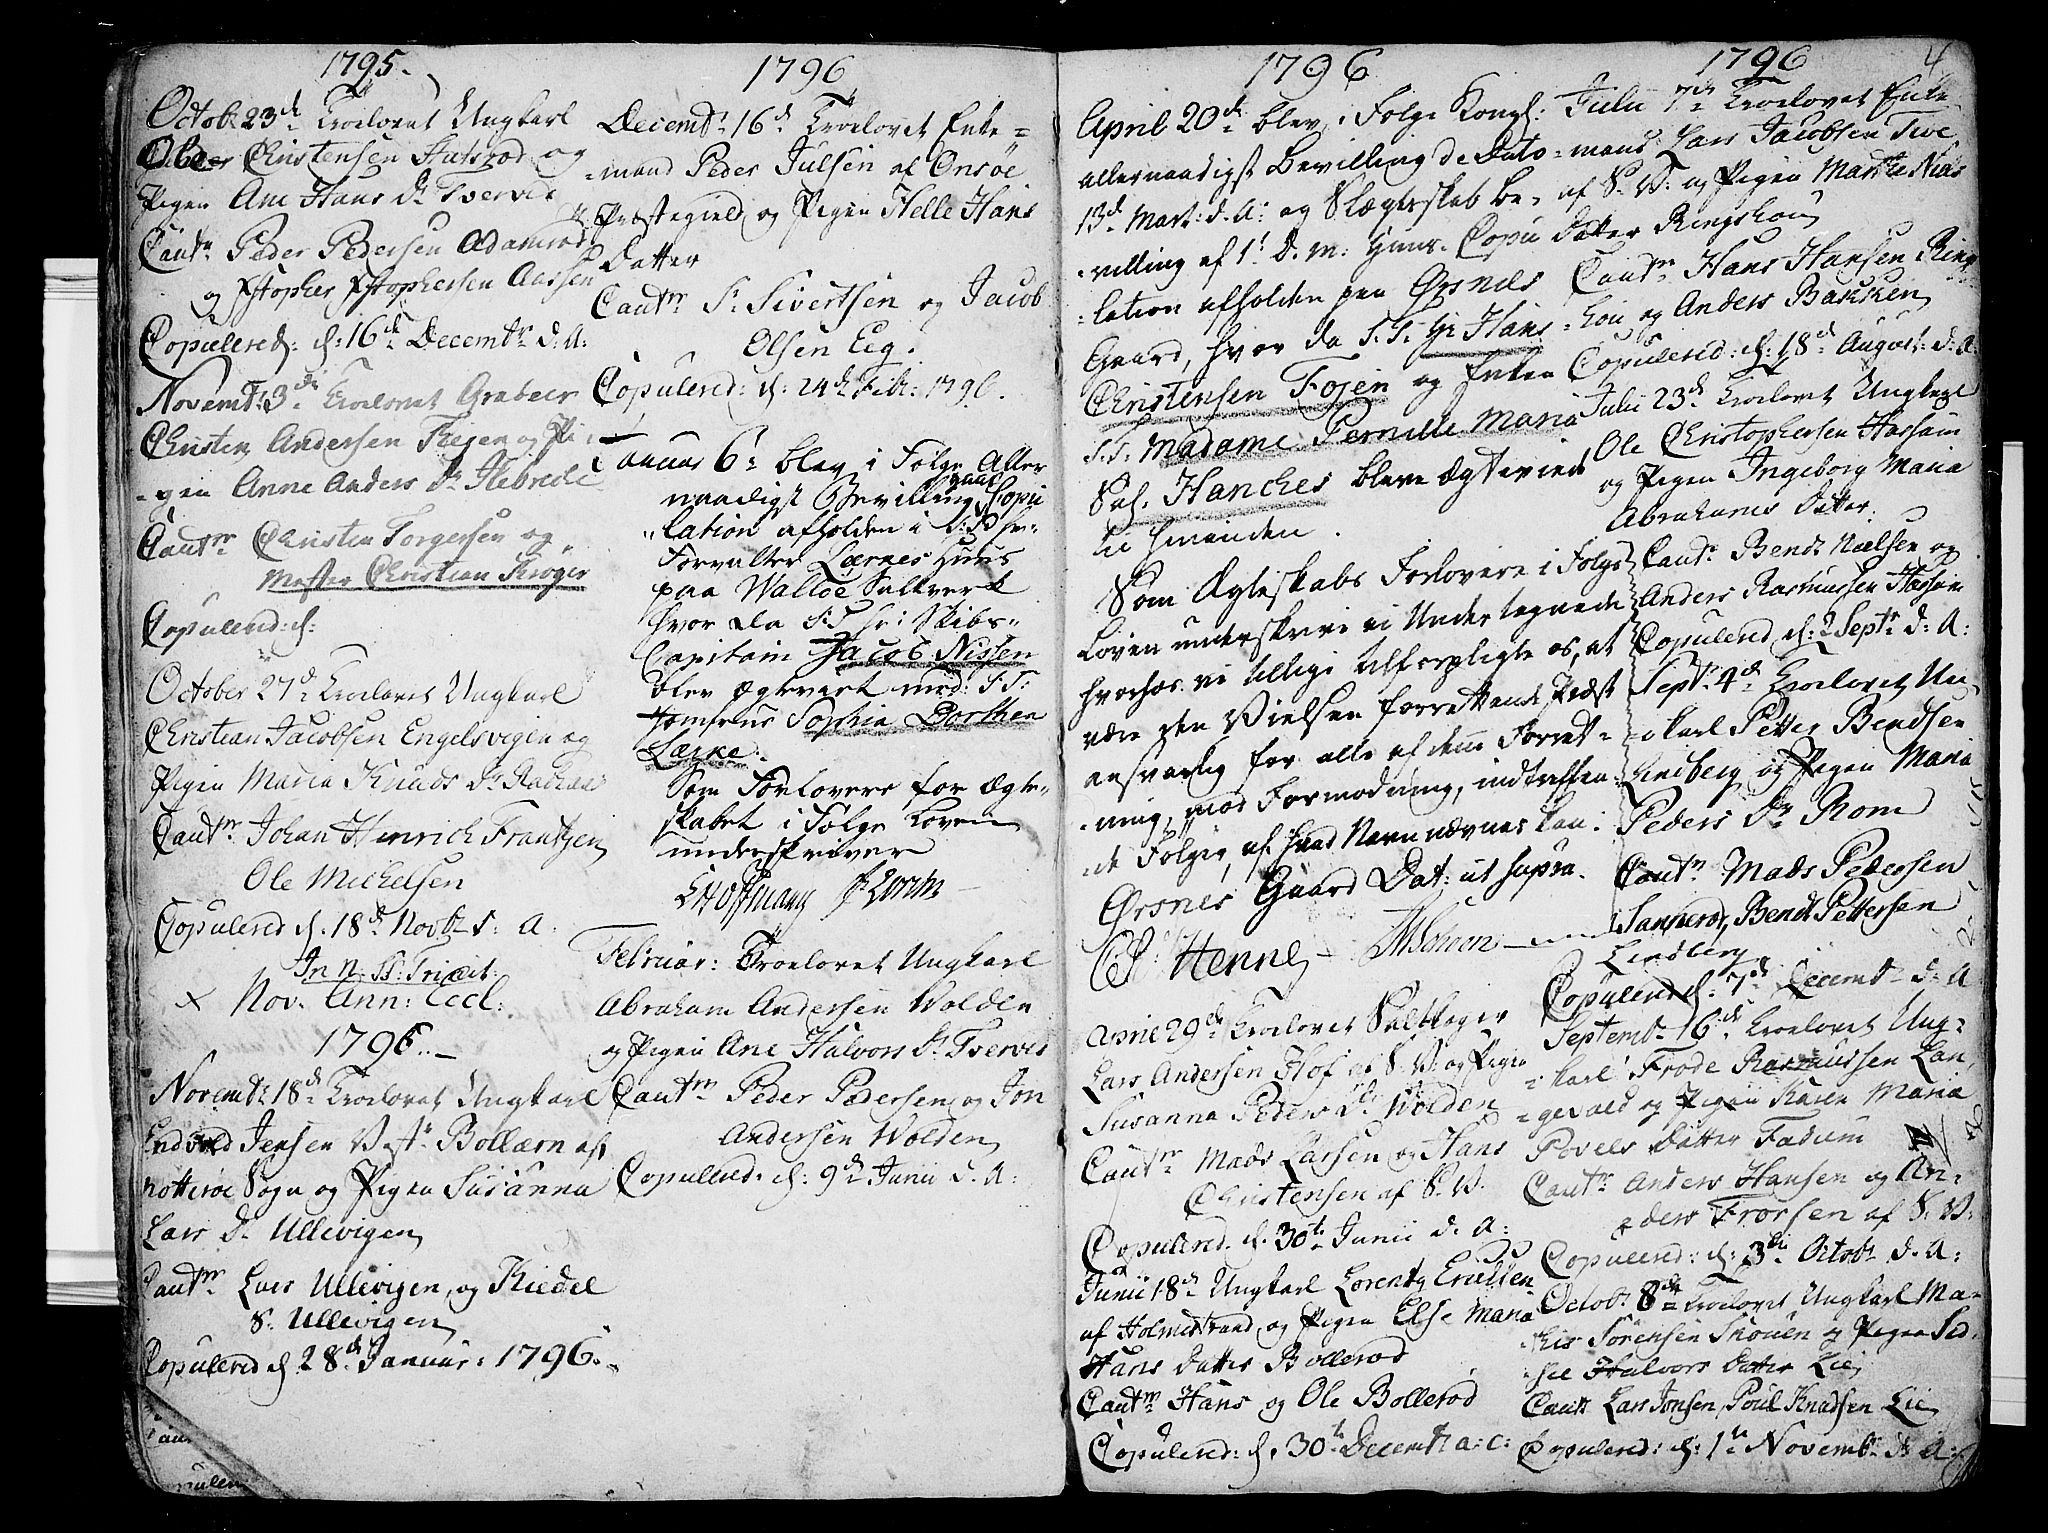 1795.
Octob: 23de Trolovet Ungkarl
Christensen Hutsrød og
Pigen Ane Hans Dr Tverved
Cautr Peder Pedersen Adamrød
og Xstopher Xstophersen Aasen
Copulered: d: 16de Decemtr d: A:
Novemtr 3die Trolovet Graber
Christen Andersen Krigen og Pi-
-gen Anne Anders Dr Ilebrede
Cautr Christen Torgersen og
Mester Christian Krøger
Copulered: d:
October 27de Trolovet Ungkarl
Christian Jacobsen Engelsvigen og
Pigen Maria Knuds Dr
Cautr Johan Henrich Frantzen
Ole Michelsen
Copulered d: 18de Novb: s: A:
In N. SS: Trinit:
X Nov. Ann: Eccl:
1796..
Novemt: 18de Trolovet Ungkarl
Endvold Jensen V.st: Bollærn af
Nøtterøe Sogn og Pigen Susanna
Lars Dr Ullevigen
Cautr Lars Ullevigen, og Kiedel
S. Ullevigen
Copulered d. 28de Januar: 1796.
1796
Decemtr 16de Trolovet Enke=
=mand Peder Julsen af Onsøe
Præstegield og Pigen Helle Hans
Datter
Cautr Sr Sivertsen og Jacob
Olsen Eeg.
Copulered: d: 24de Febr: 1796.
Januar 6te blev i Følge Aller
naadigst Bevilling, Copu
lation afholden i S:T: hr:
Forvalter Lærkes Huus
paa Walløe Saltverk
hvor da S:T hr: Skibs-
Capitain Jacob Nissen
blev Ægteviet med: S:T:
Jomfrue Sophia Dorthea
Lærke.
Som Forlovere for Ægte-
skabet i Følge Loven
underskriver
CHoffmann
Februar: Trolovet Ungkarl
Abraham Andersen Wolden
og Pigen Ane Halvors Dr Tverved
Cautr Peder Pedersen, og Jon
Andersen Wolden
Copulered. d: 9de Junii d. A:
1796
April 20de blev i Følge Kongl:
allernaadigst Bevilling de Dato
13de Mart: d. A: og Slægtskab be-
-villing af 1ste d. m: huus-Copu
-lation afholden paa Ørsnes
Gaard, hvor da S.T. Hr Hans
Christensen Foyen og Enken
S.T. Madame Pernille Maria
Sal. Hanches bleve Ægteviede
til hinanden.
Som Ægteskabs Forlovere i Følge
Loven underskrive vi Undertegnede
hvorhos vi tillige tilforpligte os, at
være den Vielsen forrettende Præst
ansvarlig for alle af denne Forret-
-ning, mod Formodning, indtreffen-
-de Følger, af hvad Navn nævnes kan.
Ørsnes Gaard Dat: ut supra.
Henne
April 29de Trolovet Saltkoger
Lars Andersen Hof af S. V: og Pigen
Susanna Peders Dr Wolden
Cautr Mads Larsen og Hans
Christensen af S. V.
Copulered. d. 30te Junii d. A:
Junii 18de Ungkarl Lorentz Ericksen
af Holmestrand og Pigen Else Maria
Hans Datter Bollerød
Cautr Hans og Ole Bollerød
Copulered: d. 30te Decemtr a: c:
1796 4
Julii 7de Trolovet Enke-
-mand Lars Jacobsen Tve
af S. V: og Pigen Marthe Niels
Datter Ringshoug
Cautr Hans Hansen Rings
-hou og Anders Bakken
Copulered: d: 18de August: d: A:
Julii 23de Trolovet Ungkarl
Ole Christophersen Hassum
og Pigen Ingeborg Maria
Abrahams Datter.
Cautr Bendt Nielsen og
Anders Rasmussen Hassum
Copulered d: 2 Septr d: A:
Septr 4de Trolovet Un-
-karl Petter Bendsen
Lindberg og Pigen Maria
Peders Dr Rom
Cautr Mads Pedersen
Sannerød, Bendt Pettersen
Lindberg
Copulered d: 7de Decemtr d: A
Septemb: 16de Trolovet Ung-
-karl Frode Rasmussen Lan-
-gevald og Pigen Karen Maria
Povels Datter Fadum
Cautr Anders Hansen og An-
-ders Frorsen af S: V:
Copulered: d: 3die Octob: d: A:
Octob: 8de Trolovet Ungkarl Ma-
-this Sørensen Skouen og Pigen Sid-
-sel Halvors Datter Lie
Cautr Lars Jonsen, Poul Knudsen Lie
Copulered: d: 1ste Novemb: d: A: